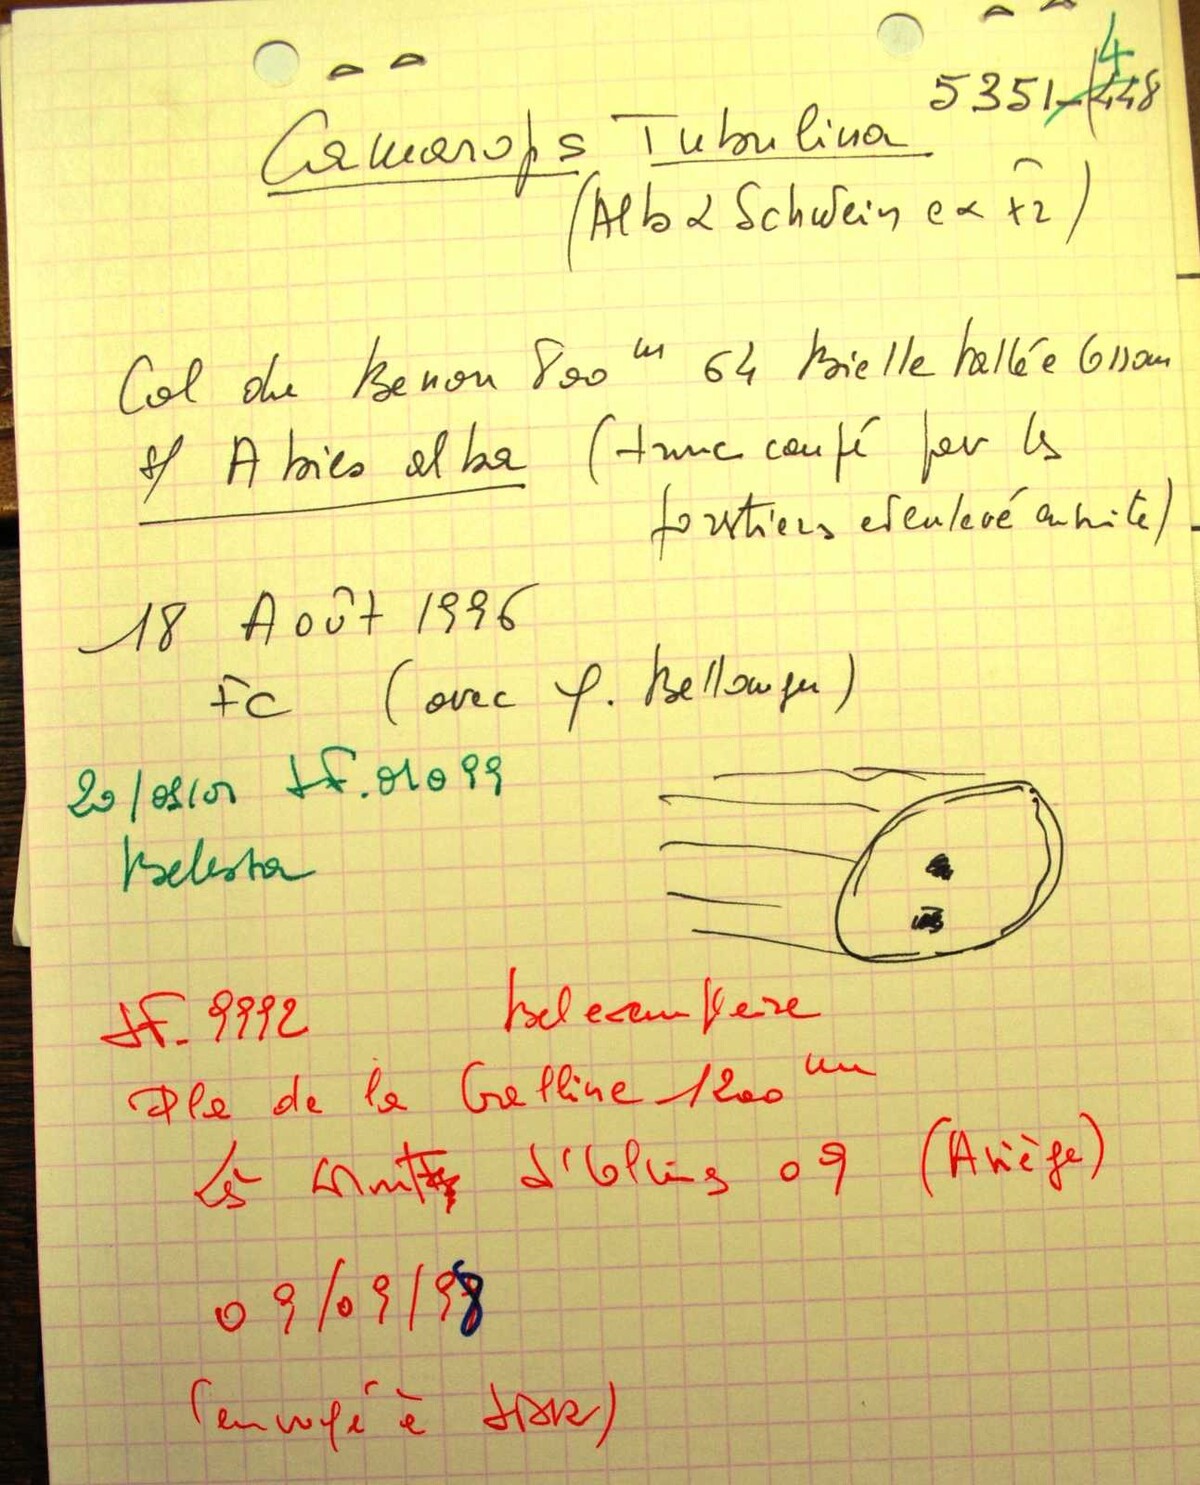 5351-448 4
Camarops Tubulina
(Alb & Schwein ex Fr)
Col du Benou 800 m 64 Bielle Vallée Ossau
s/ Abies alba (tronc coupé par les
forestiers et enlevé ensuite)
18 Août 1996
FC (avec F. Bellanger)
JF. 01099
Belesta
JF. 9992 Belesta
Pla de la Gralline 1200 m
09 (Ariège)
09/09/98
(envoyé à